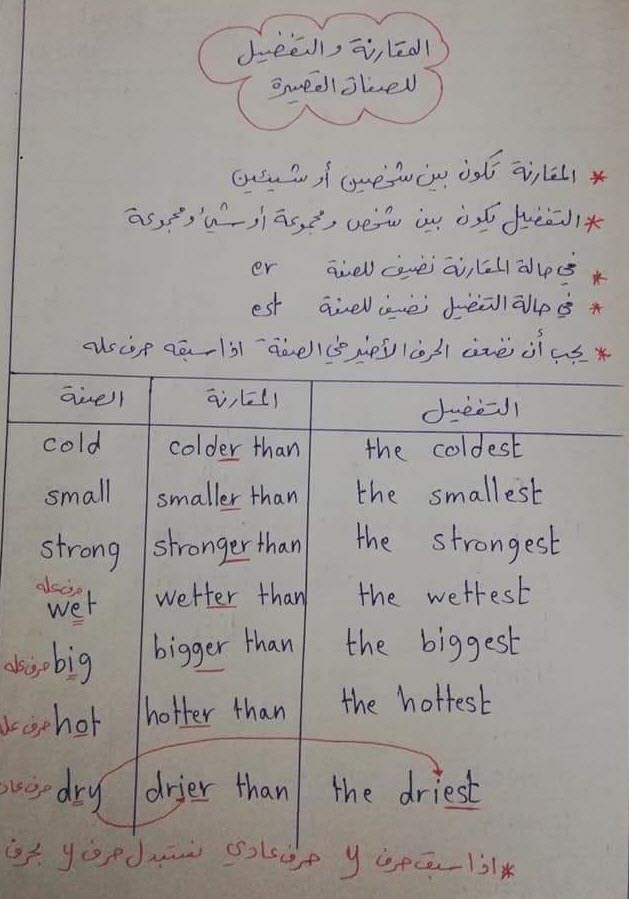 المقارنة والتفضيل
للصفات القصيرة
* المقارنة تكون بين شخصين أو شيئين
* التفضيل يكون بين شخص ومجموعة أو شيء ومجموعة
* في حالة المقارنة نضيف للصفة er
* في حالة التفضيل نضيف للصفة est
* يجب أن نضعف الحرف الأخير في الصفة اذا سبقه حرف عله
الصفة المقارنة التفضيل
cold colder than the coldest
small smaller than the smallest
strong stronger than the strongest
حرف عله
wet wetter than the wettest
حرف عله big bigger than the biggest
حرف عل hot hotter than the hottest
حرف عاد dry drier than the driest
* اذا سبق حرف y حرف عادي نستبدل حرف y بحرف